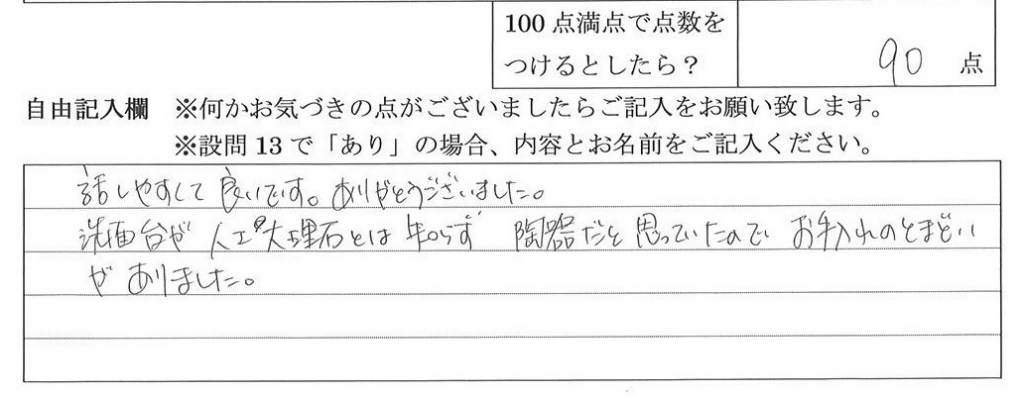 100点満点で点数を
つけるとしたら？
90 点
自由記入欄 ※何かお気づきの点がございましたらご記入をお願い致します。
※設問13で「あり」の場合、内容とお名前をご記入ください。
話しやすくて良いです。ありがとうございました。
洗面台が人工大理石とは知らず 陶器だと思っていたので お手入れのとまどい
が ありました。